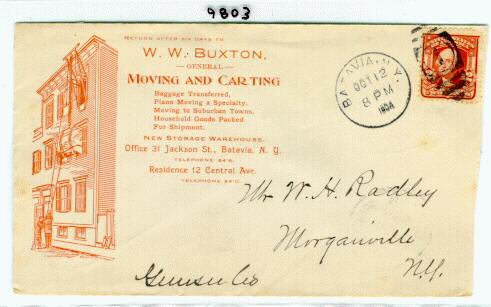 9803
RETURN AFTER SIX DAYS TO
W. W. BUXTON,
GENERAL
MOVING AND CARTING
Baggage Transferred,
Piano Moving a Specialty.
Moving to Suburban Towns.
Household Goods Packed
For Shipment.
NEW STORAGE WAREHOUSE.
Office 31 Jackson St., Batavia, N. Y.
TELEPHONE
Residence 12 Central Ave.
TELEPHONE
BATAVIA, N.Y.
OCT 12
8 PM
1904
Mr W. H. Radley
Morganville
N.Y.
Genesee Co